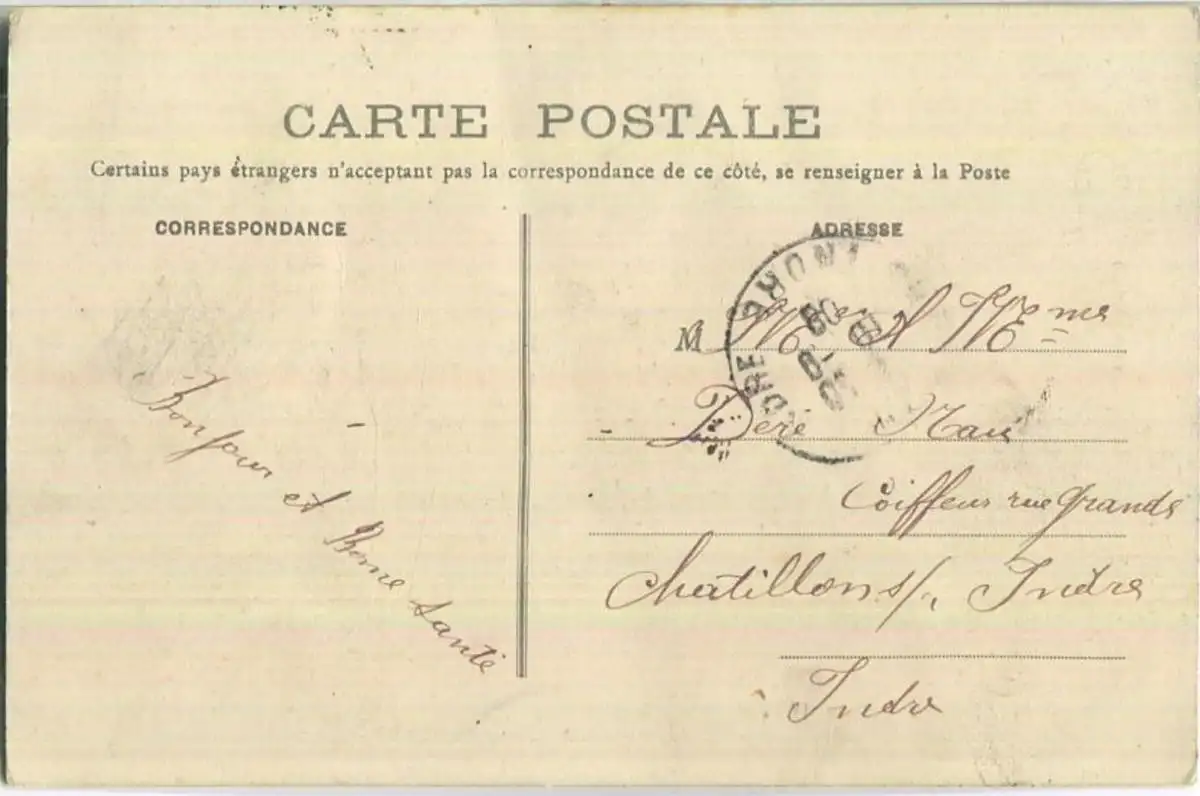 CARTE POSTALE
Certains pays étrangers n'acceptant pas la correspondance de ce côté, se renseigner à la Poste
CORRESPONDANCE
Bonjour
et Bonne santé
ADRESSE
M
Deré
Coiffeur rue grande
Chatillon s/. Indre
Indre